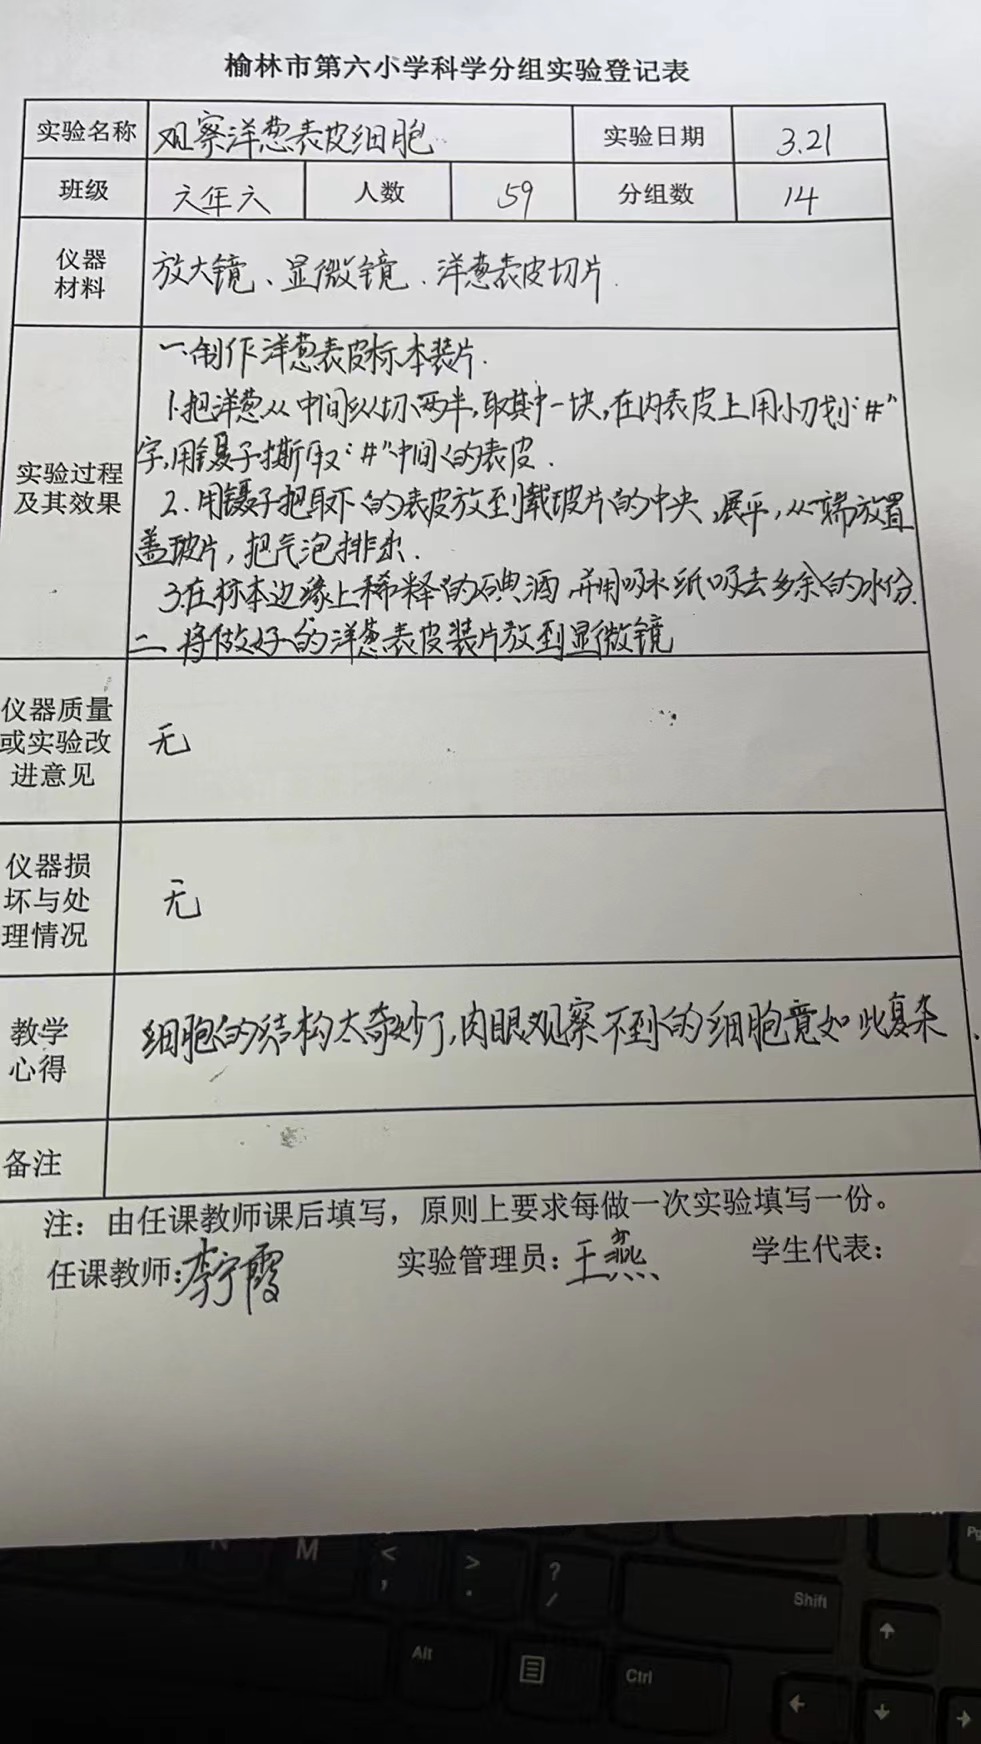 榆林市第六小学科学分组实验登记表
实验名称 观察洋葱表皮细胞 实验日期 3.21
班级 六年六 人数 59 分组数 14
仪器
材料
放大镜、显微镜、洋葱表皮切片.
实验过程
及其效果
一.制作洋葱表皮标本装片.
1.把洋葱从中间纵切两半,取其中一块,在内表皮上用小刀划“#”
字,用镊子撕取“#”中间的表皮.
2.用镊子把取下的表皮放到载玻片的中央,展平,从一端放置
盖玻片,把气泡排出.
3.在标本边缘上稀释的碘酒,并用吸水纸吸去多余的水份.
二.将做好的洋葱表皮装片放到显微镜
仪器质量
或实验改
进意见
无
仪器损
坏与处
理情况
无
教学
心得
细胞的结构太奇妙了,肉眼观察不到的细胞竟如此复杂.
备注
注：由任课教师课后填写，原则上要求每做一次实验填写一份。
任课教师:李宁霞 实验管理员:王燕 学生代表:
N M < , > . ? / Shift Pg
Alt Ctrl